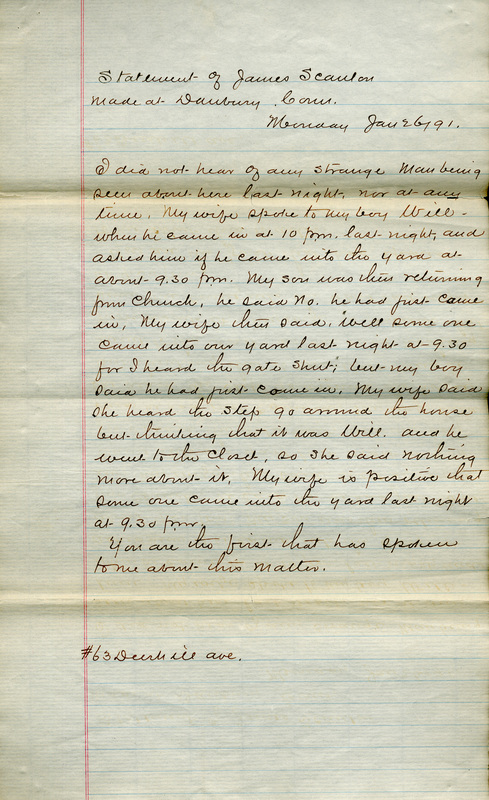 Statement of James Scanlon
Made at Danbury, Conn.
Monday Jan 26/91.
I did not hear of any strange Man being
seen about here last night, nor at any
time. My wife spoke to my boy Will -
when he came in at 10 pm. last night, and
asked him if he came into the yard at
about 9.30 pm. My son was then returning
from Church, he said No. he had just came
in. My wife then said, Well some one
came into our yard last night at 9.30
for I heard the gate shut; but my boy
said he had just come in. My wife said
she heard the step go around the house
but thinking that it was Will. and he
went to the Closet, so she said nothing
more about it. My wife is positive that
some one came into the yard last night
at 9.30 pm
You are the first that has spoken
to me about this matter.
#63 Deerhill ave.